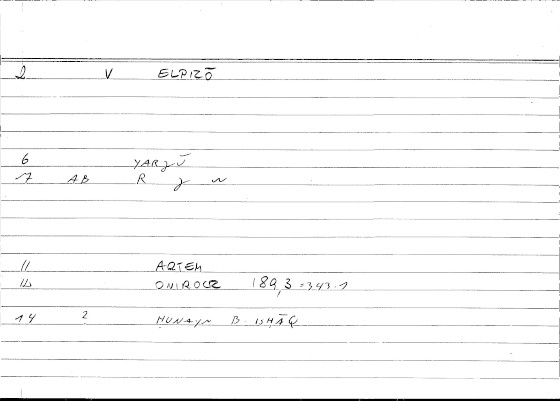 2 V ELPIZŌ
6 YARJŪ
7 AB R J W
11 ARTEM
12 ONIROCR 189,3=343.1
14 2 HUNAYN B ISHĀQ